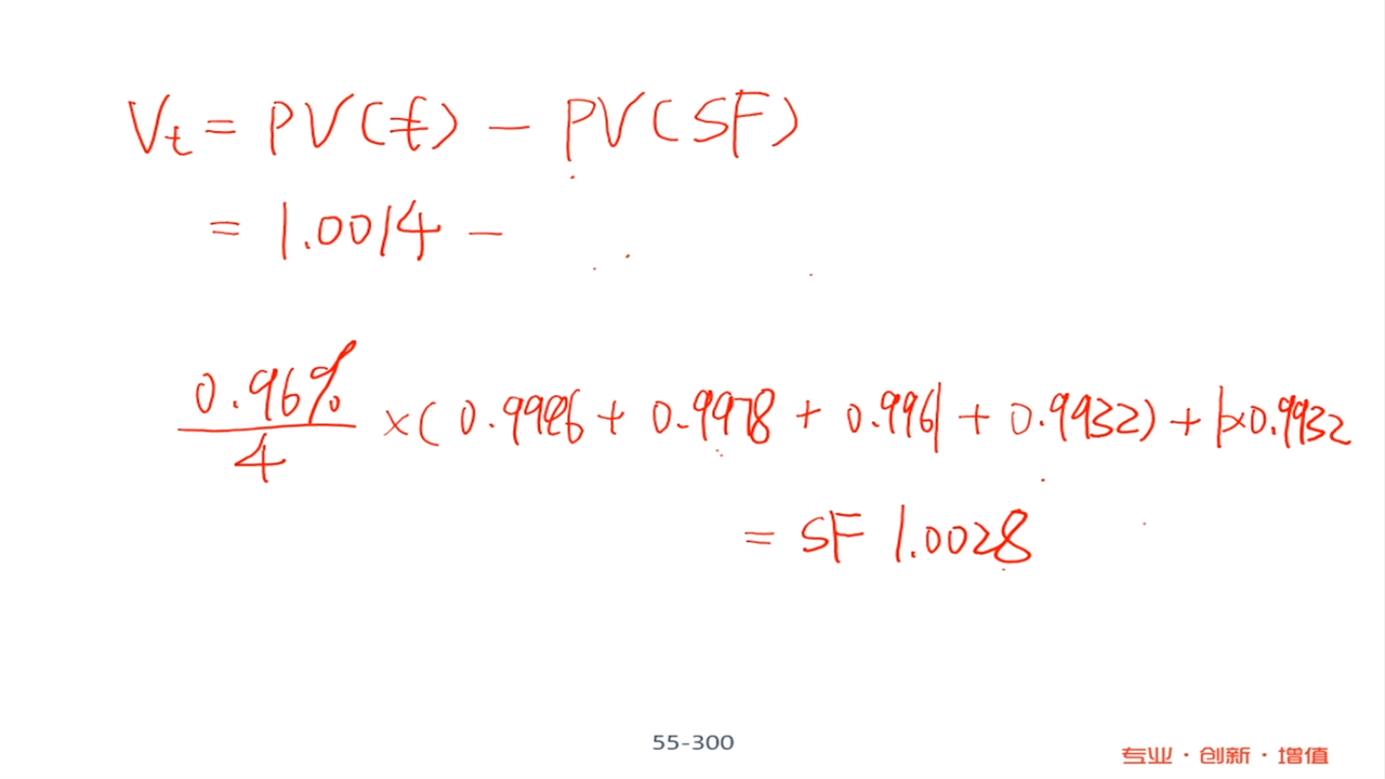 Vt = PV(£) - PV(SF)
= 1.0014 -
0.96%/4 ×( 0.9996 + 0.9978 + 0.9961 + 0.9932) + 1×0.9932
= SF 1.0028
55-300
专业·创新·增值